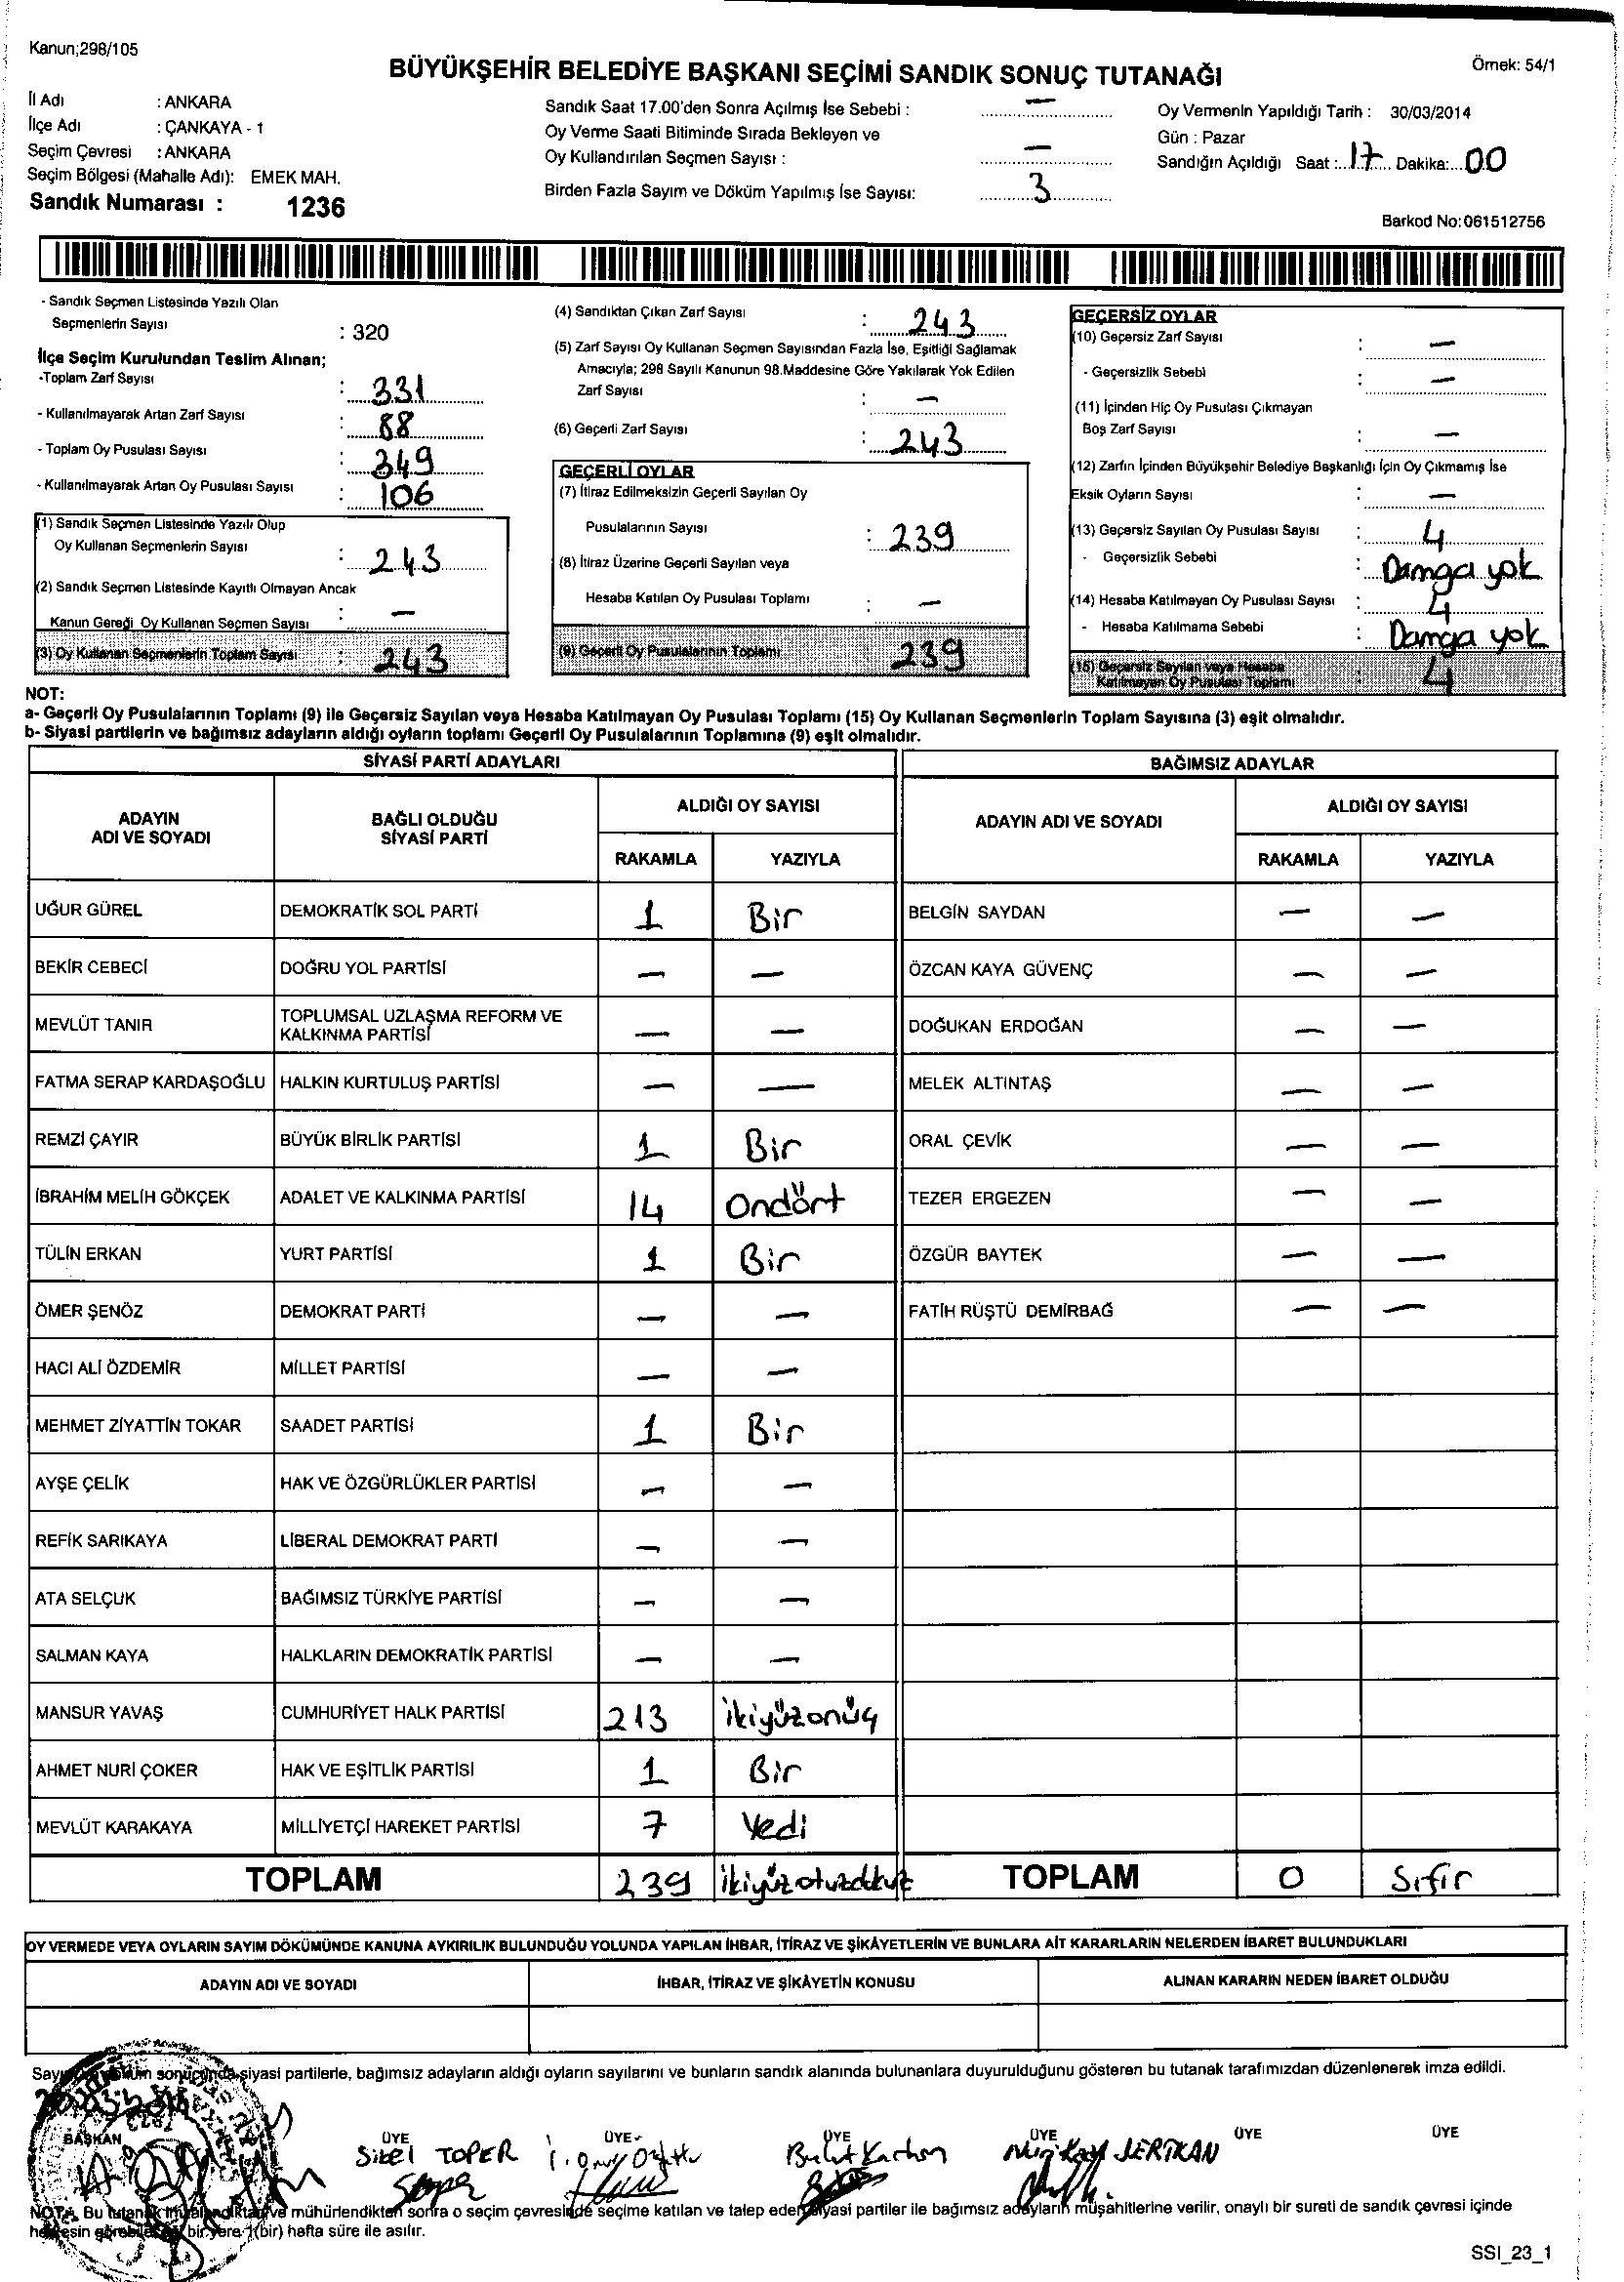 Kanun;298/105
BÜYÜKŞEHİR BELEDİYE BAŞKANI SEÇİMİ SANDIK SONUÇ TUTANAĞI
Örnek: 54/1
İl Adı : ANKARA
İlçe Adı : ÇANKAYA - 1
Seçim Çevresi : ANKARA
Seçim Bölgesi (Mahalle Adı): EMEK MAH.
Sandık Numarası : 1236
Sandık Saat 17.00'den Sonra Açılmış İse Sebebi : —
Oy Verme Saati Bitiminde Sırada Bekleyen ve
Oy Kullandırılan Seçmen Sayısı : —
Birden Fazla Sayım ve Döküm Yapılmış İse Sayısı: 3
Oy Vermenin Yapıldığı Tarih : 30/03/2014
Gün : Pazar
Sandığın Açıldığı Saat : 17 Dakika: 00
Barkod No:061512756
- Sandık Seçmen Listesinde Yazılı Olan
Seçmenlerin Sayısı : 320
İlçe Seçim Kurulundan Teslim Alınan;
-Toplam Zarf Sayısı : 331
- Kullanılmayarak Artan Zarf Sayısı : 88
- Toplam Oy Pusulası Sayısı : 349
- Kullanılmayarak Artan Oy Pusulası Sayısı : 106
(1) Sandık Seçmen Listesinde Yazılı Olup
Oy Kullanan Seçmenlerin Sayısı : 243
(2) Sandık Seçmen Listesinde Kayıtlı Olmayan Ancak
Kanun Gereği Oy Kullanan Seçmen Sayısı : —
(3) Oy Kullanan Seçmenlerin Toplam Sayısı : 243
(4) Sandıktan Çıkan Zarf Sayısı : 243
(5) Zarf Sayısı Oy Kullanan Seçmen Sayısından Fazla İse, Eşitliği Sağlamak
Amacıyla; 298 Sayılı Kanunun 98.Maddesine Göre Yakılarak Yok Edilen
Zarf Sayısı : —
(6) Geçerli Zarf Sayısı : 243
GEÇERLİ OYLAR
(7) İtiraz Edilmeksizin Geçerli Sayılan Oy
Pusulalarının Sayısı : 239
(8) İtiraz Üzerine Geçerli Sayılan veya
Hesaba Katılan Oy Pusulası Toplamı : —
(9) Geçerli Oy Pusulalarının Toplamı : 239
GEÇERSİZ OYLAR
(10) Geçersiz Zarf Sayısı : —
- Geçersizlik Sebebi : —
(11) İçinden Hiç Oy Pusulası Çıkmayan
Boş Zarf Sayısı : —
(12) Zarfın İçinden Büyükşehir Belediye Başkanlığı İçin Oy Çıkmamış İse
Eksik Oyların Sayısı : —
(13) Geçersiz Sayılan Oy Pusulası Sayısı : 4
- Geçersizlik Sebebi : Damga yok
(14) Hesaba Katılmayan Oy Pusulası Sayısı : 4
- Hesaba Katılmama Sebebi : Damga yok
(15) Geçersiz Sayılan veya Hesaba
Katılmayan Oy Pusulası Toplamı : 4
NOT:
a- Geçerli Oy Pusulalarının Toplamı (9) ile Geçersiz Sayılan veya Hesaba Katılmayan Oy Pusulası Toplamı (15) Oy Kullanan Seçmenlerin Toplam Sayısına (3) eşit olmalıdır.
b- Siyasi partilerin ve bağımsız adayların aldığı oyların toplamı Geçerli Oy Pusulalarının Toplamına (9) eşit olmalıdır.
SİYASİ PARTİ ADAYLARI BAĞIMSIZ ADAYLAR
ADAYIN ADI VE SOYADI BAĞLI OLDUĞU SİYASİ PARTİ ALDIĞI OY SAYISI ADAYIN ADI VE SOYADI ALDIĞI OY SAYISI
RAKAMLA YAZIYLA RAKAMLA YAZIYLA
UĞUR GÜREL DEMOKRATİK SOL PARTİ 1 Bir BELGİN SAYDAN — —
BEKİR CEBECİ DOĞRU YOL PARTİSİ — — ÖZCAN KAYA GÜVENÇ — —
MEVLÜT TANIR TOPLUMSAL UZLAŞMA REFORM VE KALKINMA PARTİSİ — — DOĞUKAN ERDOĞAN — —
FATMA SERAP KARDAŞOĞLU HALKIN KURTULUŞ PARTİSİ — — MELEK ALTINTAŞ — —
REMZİ ÇAYIR BÜYÜK BİRLİK PARTİSİ 1 Bir ORAL ÇEVİK — —
İBRAHİM MELİH GÖKÇEK ADALET VE KALKINMA PARTİSİ 14 Ondört TEZER ERGEZEN — —
TÜLİN ERKAN YURT PARTİSİ 1 Bir ÖZGÜR BAYTEK — —
ÖMER ŞENÖZ DEMOKRAT PARTİ — — FATİH RÜŞTÜ DEMİRBAĞ — —
HACI ALİ ÖZDEMİR MİLLET PARTİSİ — —
MEHMET ZİYATTİN TOKAR SAADET PARTİSİ 1 Bir
AYŞE ÇELİK HAK VE ÖZGÜRLÜKLER PARTİSİ — —
REFİK SARIKAYA LİBERAL DEMOKRAT PARTİ — —
ATA SELÇUK BAĞIMSIZ TÜRKİYE PARTİSİ — —
SALMAN KAYA HALKLARIN DEMOKRATİK PARTİSİ — —
MANSUR YAVAŞ CUMHURİYET HALK PARTİSİ 213 ikiyüzonüç
AHMET NURİ ÇOKER HAK VE EŞİTLİK PARTİSİ 1 Bir
MEVLÜT KARAKAYA MİLLİYETÇİ HAREKET PARTİSİ 7 Yedi
TOPLAM 239 ikiyüzotuzdokuz TOPLAM 0 Sıfır
OY VERMEDE VEYA OYLARIN SAYIM DÖKÜMÜNDE KANUNA AYKIRILIK BULUNDUĞU YOLUNDA YAPILAN İHBAR, İTİRAZ VE ŞİKÂYETLERİN VE BUNLARA AİT KARARLARIN NELERDEN İBARET BULUNDUKLARI
ADAYIN ADI VE SOYADI İHBAR, İTİRAZ VE ŞİKÂYETİN KONUSU ALINAN KARARIN NEDEN İBARET OLDUĞU
sonucunda siyasi partilerle, bağımsız adayların aldığı oyların sayılarını ve bunların sandık alanında bulunanlara duyurulduğunu gösteren bu tutanak tarafımızdan düzenlenerek imza edildi.
BAŞKAN ÜYE ÜYE ÜYE ÜYE ÜYE ÜYE
Sibel TOPER
NOT: Bu tutanak imzalandıktan ve mühürlendikten sonra o seçim çevresinde seçime katılan ve talep eden siyasi partiler ile bağımsız adayların müşahitlerine verilir, onaylı bir sureti de sandık çevresi içinde
herkesin görebileceği bir yere 1(bir) hafta süre ile asılır.
SSI_23_1